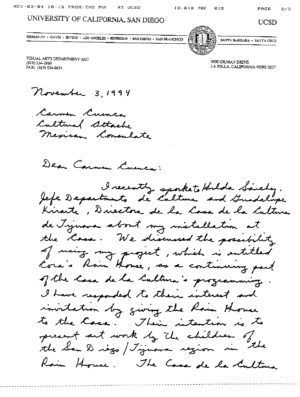 NOV-03-94 18:15 FROM:THE PUC AT UCSD
PAGE 2/3
UNIVERSITY OF CALIFORNIA, SAN DIEGO
UCSD
BERKELEY • DAVIS • IRVINE • LOS ANGELES • RIVERSIDE • SAN DIEGO • SAN FRANCISCO
SANTA BARBARA • SANTA CRUZ
VISUAL ARTS DEPARTMENT 0327
9500 GILMAN DRIVE
LA JOLLA, CALIFORNIA 92093-0327
November 3, 1994
Carmen Cuenca
Cultural Attache
Mexican Consulate
Dear Carmen Cuenca:
I recently spoke to Hilda Sánchez,
Jefe Departamento de Cultura and Guadalupe
Kirarte, Directora de la Casa de la Cultura
de Tijuana about my installation at
the Casa. We discussed the possibility
of using my project, which is entitled
Cora's Rain House, as a continuing part
of the Casa de la Cultura's programming.
I have responded to their interest and
invitation by giving the Rain House
to the Casa. Their intention is to
present art work by the children of
the San Diego/Tijuana region in the
Rain House. The Casa de la Cultura